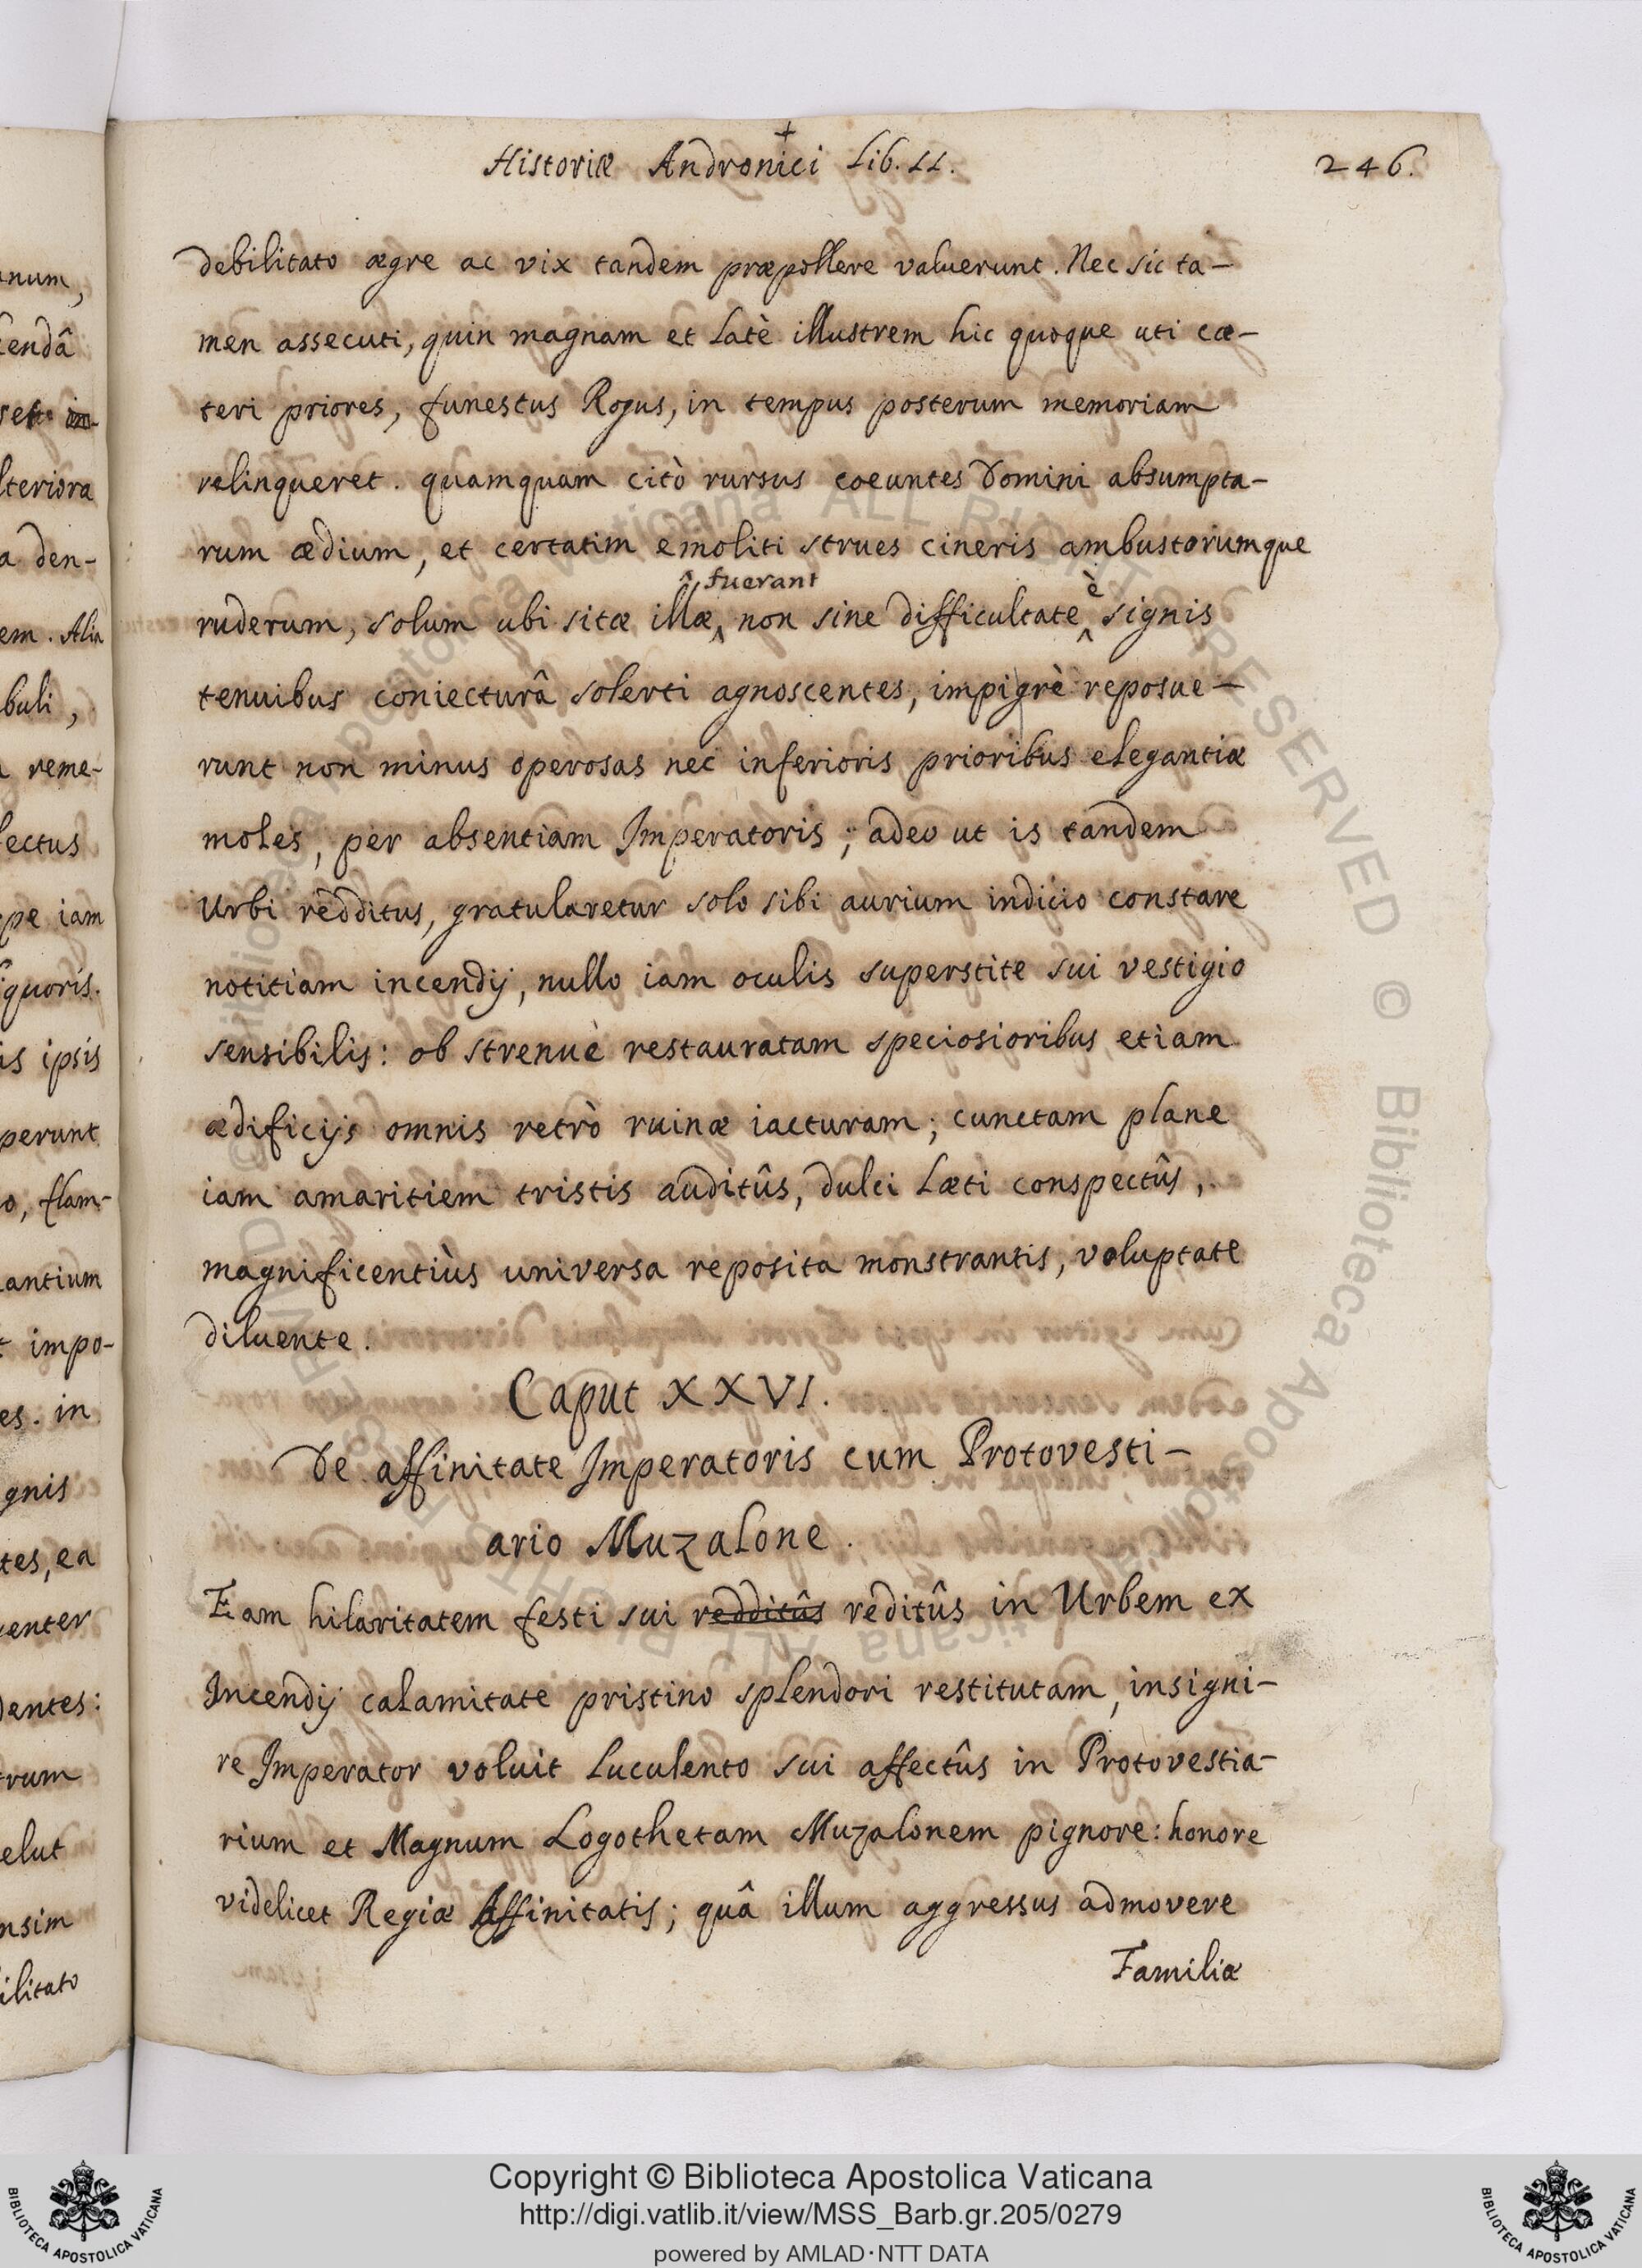 Historiæ Andronici Lib. II.
246.
debilitato ægre ac vix tandem præpollere valuerunt. Nec sic ta-
men assecuti, quin magnam et latè illustrem hic quoque uti cæ-
teri priores, funestus Rogus, in tempus posterum memoriam
relinqueret. quamquam citò rursus coeuntes Domini absumpta-
rum ædium, et certatim emoliti strues cineris ambustorumque
fuerant è
ruderum, solum ubi sitæ illæ, non sine difficultate signis
tenuibus coniecturâ solerti agnoscentes, impigrè reposue-
runt non minus operosas nec inferioris prioribus elegantiæ
moles, per absentiam Imperatoris; adeo ut is tandem
Urbi redditus, gratularetur solo sibi aurium indicio constare
notitiam incendij, nullo iam oculis superstite sui vestigio
sensibilis: ob strenuè restauratam speciosioribus etiam
ædificijs omnis retrò ruinæ iacturam; cunctam plane
iam amaritiem tristis auditûs, dulci Læti conspectûs,
magnificentiùs universa reposita monstrantis, voluptate
diluente.
Caput XXVI.
De affinitate Imperatoris cum Protovesti-
ario Muzalone.
Eam hilaritatem festi sui redditûs reditûs in Urbem ex
Incendij calamitate pristino splendori restitutam, insigni-
re Imperator voluit luculento sui affectûs in Protovestia-
rium et Magnum Logothetam Muzalonem pignore: honore
videlicet Regiæ Affinitatis; quâ illum aggressus admovere
Familiæ
num,
cendâ
lteriora
a den-
em. Alia
buli,
reme-
lectus
pe iam
iquoris.
is ipsis
perunt
o, flam-
antium
t impo-
es. in
gnis
tes, ea
enter
dentes:
trum
elut
nsim
ilitato
© Biblioteca Apostolica Vaticana ALL RIGHTS RESERVED © Biblioteca Apostolica Vaticana ALL RIGHTS RESERVED
Copyright © Biblioteca Apostolica Vaticana
http://digi.vatlib.it/view/MSS_Barb.gr.205/0279
powered by AMLAD·NTT DATA
BIBLIOTECA APOSTOLICA VATICANA
BIBLIOTECA APOSTOLICA VATICANA